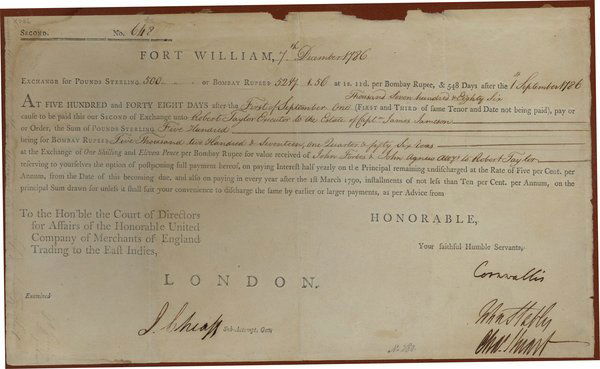 SECOND. No. 648
FORT WILLIAM, 7th December 1786
EXCHANGE for POUNDS STERLING 500 OR BOMBAY RUPEES 5217 1.56 at 1s. 11d. per Bombay Rupee, & 548 Days after the 1st September 1786
Thousand Seven hundred & Eighty Six
AT FIVE HUNDRED and FORTY EIGHT DAYS after the First of September One (FIRST and THIRD of same Tenor and Date not being paid), pay or
cause to be paid this our SECOND of Exchange unto Robert Taylor Executor to the Estate of Capt. James Jameson
or Order, the Sum of POUNDS STERLING Five Hundred
being for BOMBAY RUPEES Five Thousand two Hundred & Seventeen, one Quarter & fifty Six reas
at the Exchange of One Shilling and Eleven Pence per Bombay Rupee for value received of John Forbes & John Agnew Atty. to Robert Taylor
reserving to yourselves the option of postponing full payment hereof, on paying Interest half yearly on the Principal remaining undischarged at the Rate of Five per Cent. per
Annum, from the Date of this becoming due, and also on paying in every year after the 1st March 1790, installments of not less than Ten per Cent. per Annum, on the
principal Sum drawn for unless it shall suit your convenience to discharge the same by earlier or larger payments, as per Advice from
HONORABLE,
To the Hon'ble the Court of Directors
for Affairs of the Honorable United
Company of Merchants of England
Trading to the East Indies,
Your faithful Humble Servants,
LONDON.
Cornwallis
Examined
Sub-Accompt. Genl.
Chas. Stuart
No. 280.